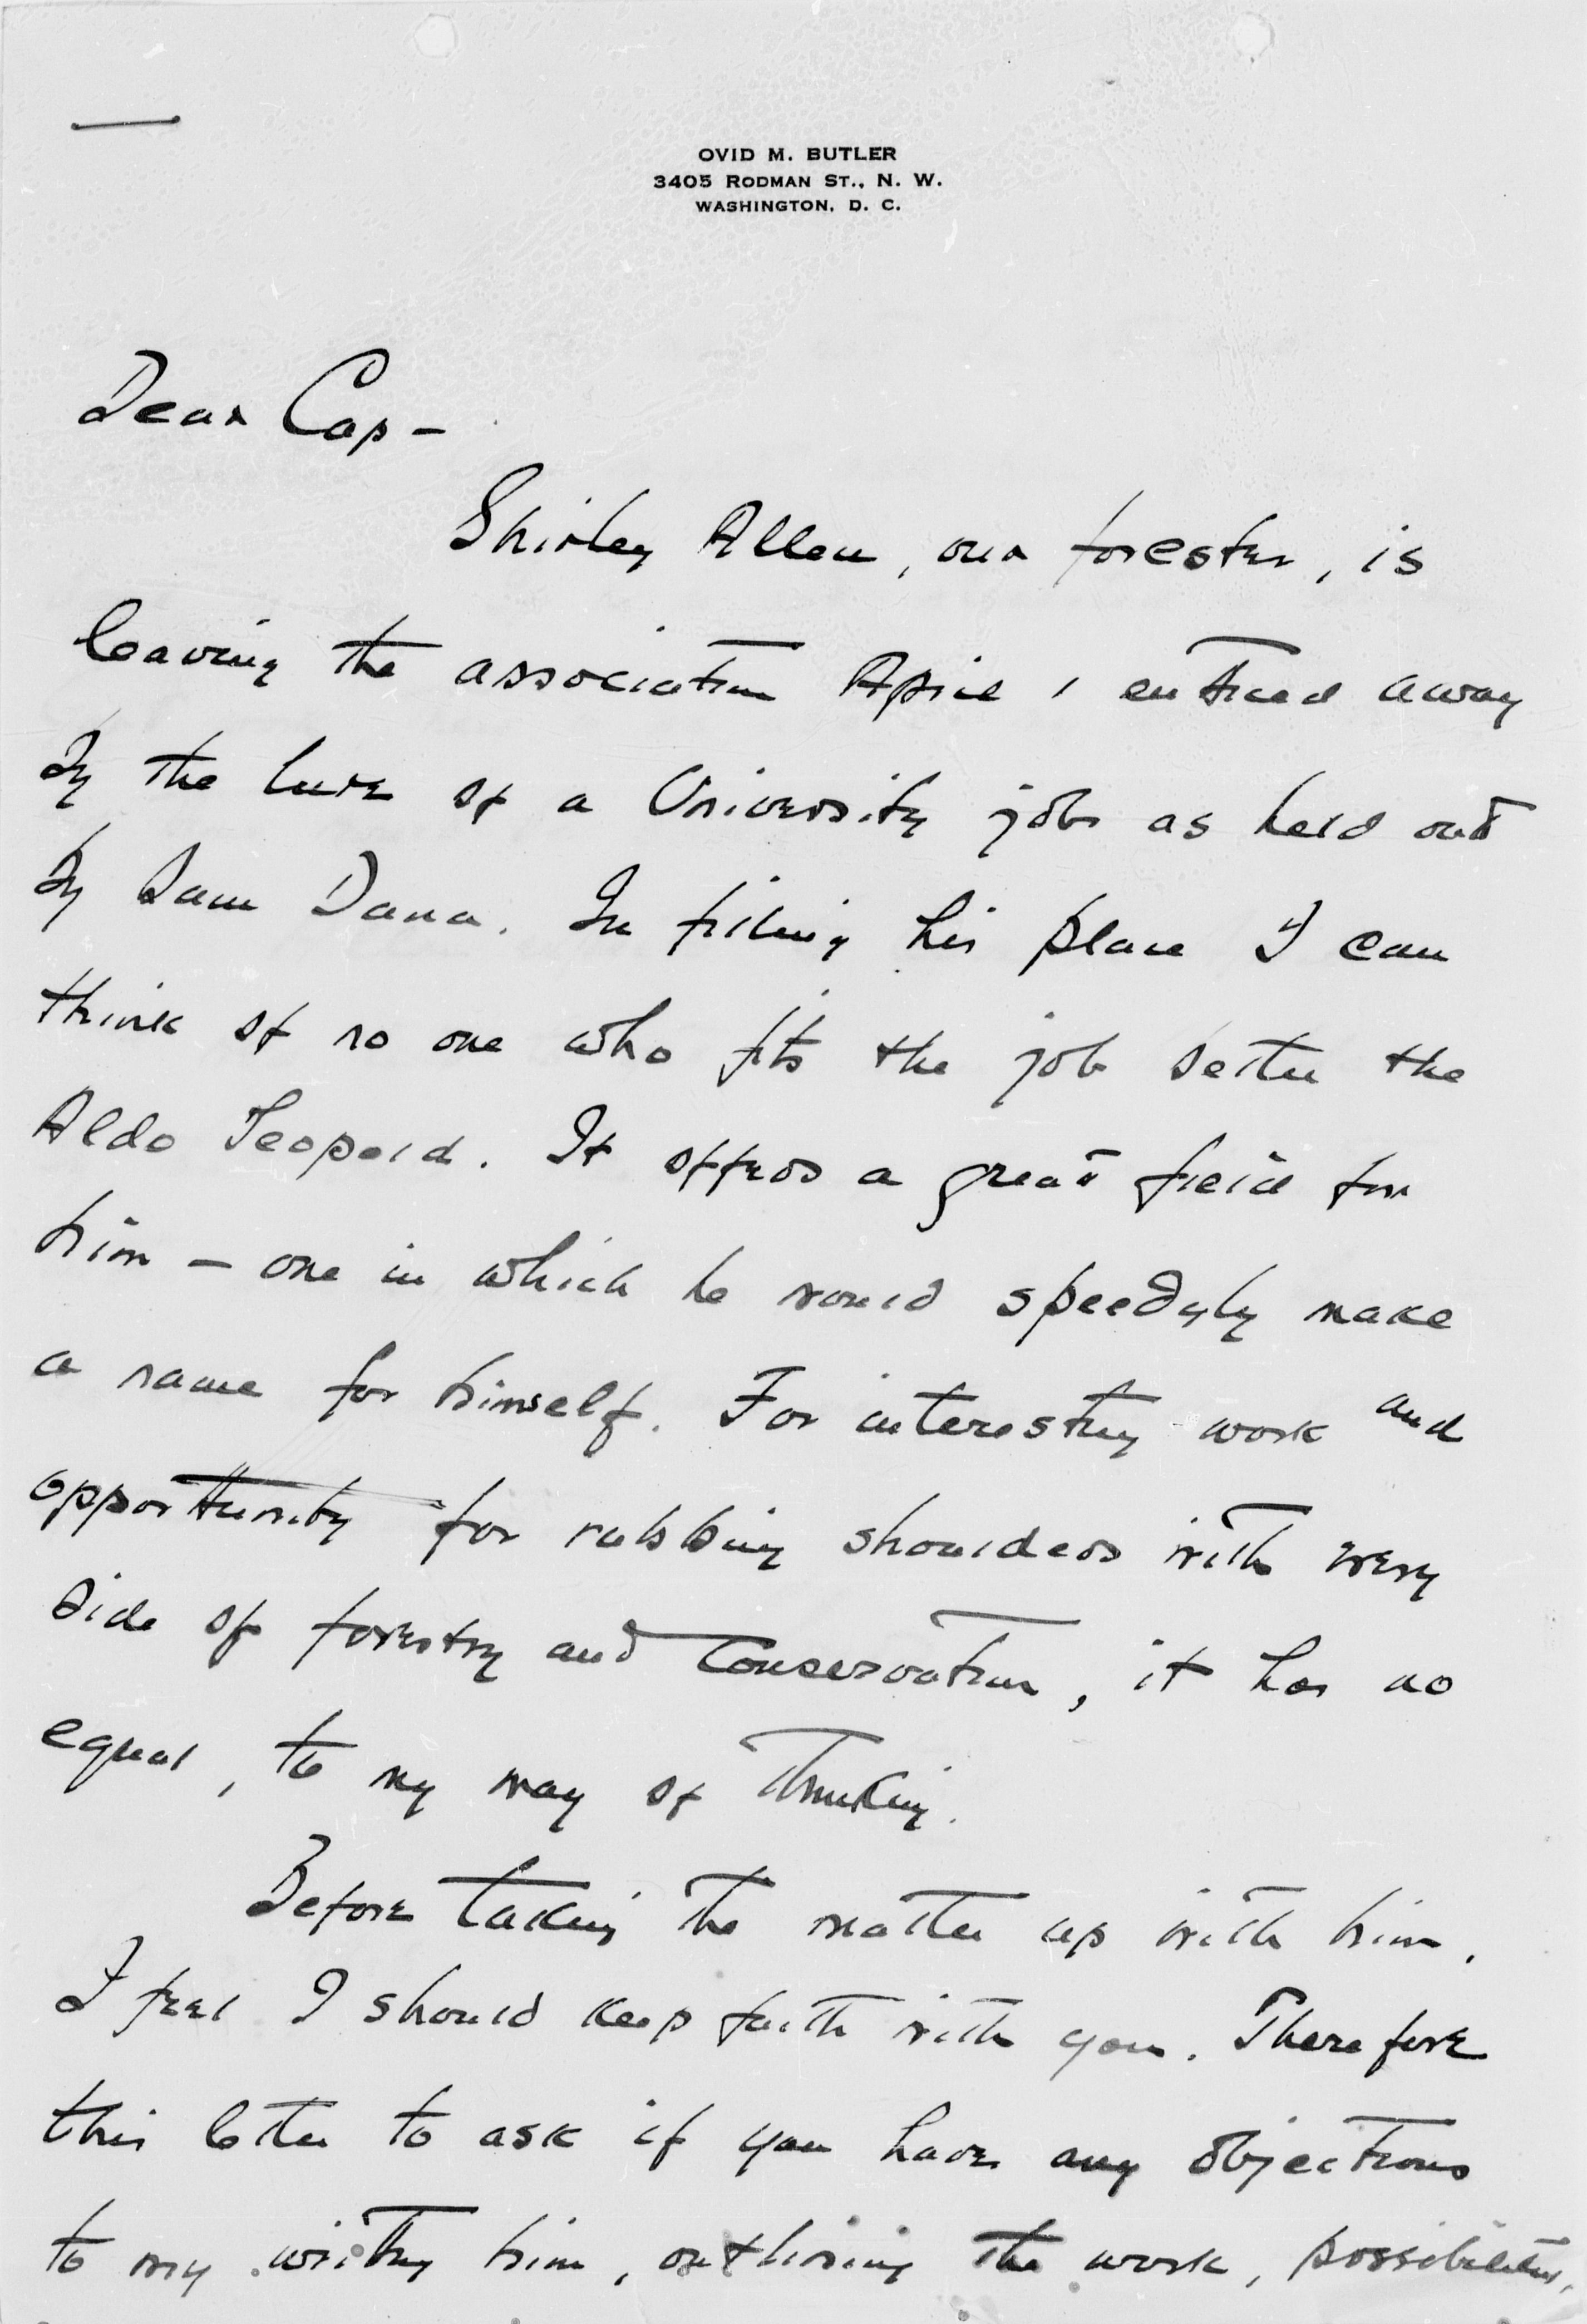 OVID M. BUTLER
3405 RODMAN ST., N. W.
WASHINGTON, D. C.
Dear Cap -
Shirley Allen, our forester, is
leaving the association April 1 enticed away
by the lure of a University job as held out
by Sam Dana. In filling his place I can
think of no one who fits the job better the
Aldo Leopold. It offers a great field for
him - one in which he would speedyly make
a name for himself. For interesting work and
opportunity for rubbing shoulders with every
side of forestry and Conservation, it has no
equal, to my way of thinking.
Before taking the matter up with him,
I feel I should keep faith with you. Therefore
this letter to ask if you have any objections
to my writing him, outlining the work, possibilities,